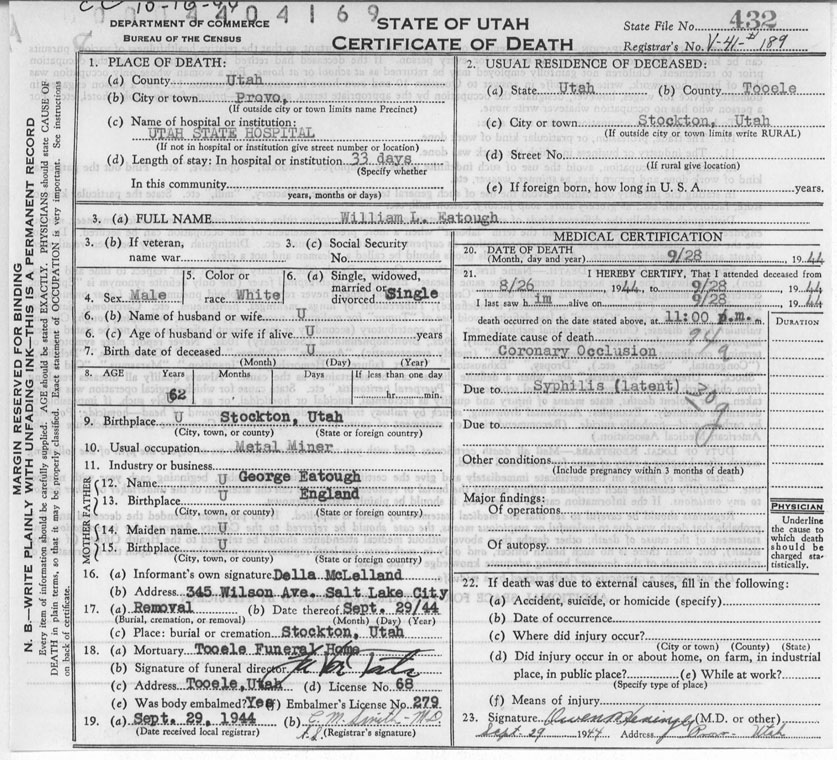 10-16-44
4404169
DEPARTMENT OF COMMERCE
BUREAU OF THE CENSUS
STATE OF UTAH
CERTIFICATE OF DEATH
State File No. 432
Registrar's No. V-41-#189
MARGIN RESERVED FOR BINDING
N. B.—WRITE PLAINLY WITH UNFADING INK—THIS IS A PERMANENT RECORD
Every item of information should be carefully supplied. AGE should be stated EXACTLY. PHYSICIANS should state CAUSE OF
DEATH in plain terms, so that it may be properly classified. Exact statement of OCCUPATION is very important. See instructions
on back of certificate.
1. PLACE OF DEATH:
(a) County Utah
(b) City or town Provo,
(If outside city or town limits name Precinct)
(c) Name of hospital or institution:
UTAH STATE HOSPITAL
(If not in hospital or institution give street number or location)
(d) Length of stay: In hospital or institution 33 days
(Specify whether
In this community
years, months or days)
2. USUAL RESIDENCE OF DECEASED:
(a) State Utah (b) County Tooele
(c) City or town Stockton, Utah
(If outside city or town limits write RURAL)
(d) Street No.
(If rural give location)
(e) If foreign born, how long in U. S. A. years.
3. (a) FULL NAME William L. Eatough
3. (b) If veteran, 3. (c) Social Security
name war No.
4. Sex Male 5. Color or race White 6. (a) Single, widowed, married or divorced Single
6. (b) Name of husband or wife U
6. (c) Age of husband or wife if alive U years
7. Birth date of deceased U
(Month) (Day) (Year)
8. AGE Years Months Days If less than one day
62 hr. min.
9. Birthplace U Stockton, Utah
(City, town, or county) (State or foreign country)
10. Usual occupation Metal Miner
11. Industry or business
FATHER
12. Name U George Eatough
13. Birthplace U England
(City, town, or county) (State or foreign country)
MOTHER
14. Maiden name U
15. Birthplace U
(City, town, or county) (State or foreign country)
16. (a) Informant's own signature Della McLelland
(b) Address 345 Wilson Ave. Salt Lake City
17. (a) Removal (b) Date thereof Sept. 29/44
(Burial, cremation, or removal) (Month) (Day) (Year)
(c) Place: burial or cremation Stockton, Utah
18. (a) Mortuary Tooele Funeral Home
(b) Signature of funeral director
(c) Address Tooele, Utah (d) License No. 68
(e) Was body embalmed? Yes (f) Embalmer's License No. 279
19. (a) Sept. 29, 1944 (b) C. M. Smith - M.D.
(Date received local registrar) (Registrar's signature)
MEDICAL CERTIFICATION
20. DATE OF DEATH
(Month, day and year) 9/28 1944
21. I HEREBY CERTIFY, That I attended deceased from
8/26 1944, to 9/28 1944
I last saw him alive on 9/28 1944
death occurred on the date stated above, at 11:00 p.m. m.
DURATION
Immediate cause of death 94a
Coronary Occlusion
Due to Syphilis (latent) 30g
Due to
Other conditions
(Include pregnancy within 3 months of death)
Major findings:
Of operations
Of autopsy
PHYSICIAN
Underline
the cause to
which death
should be
charged sta-
tistically.
22. If death was due to external causes, fill in the following:
(a) Accident, suicide, or homicide (specify)
(b) Date of occurrence
(c) Where did injury occur?
(City or town) (County) (State)
(d) Did injury occur in or about home, on farm, in industrial
place, in public place? (e) While at work?
(Specify type of place)
(f) Means of injury
23. Signature Owen Heninger (M.D. or other)
Sept. 29 1944 Address Provo - Utah